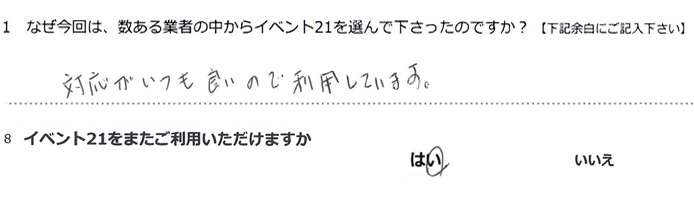 1 なぜ今回は、数ある業者の中からイベント21を選んで下さったのですか？【下記余白にご記入下さい】
対応がいつも良いので利用しています。
8 イベント21をまたご利用いただけますか
はい いいえ